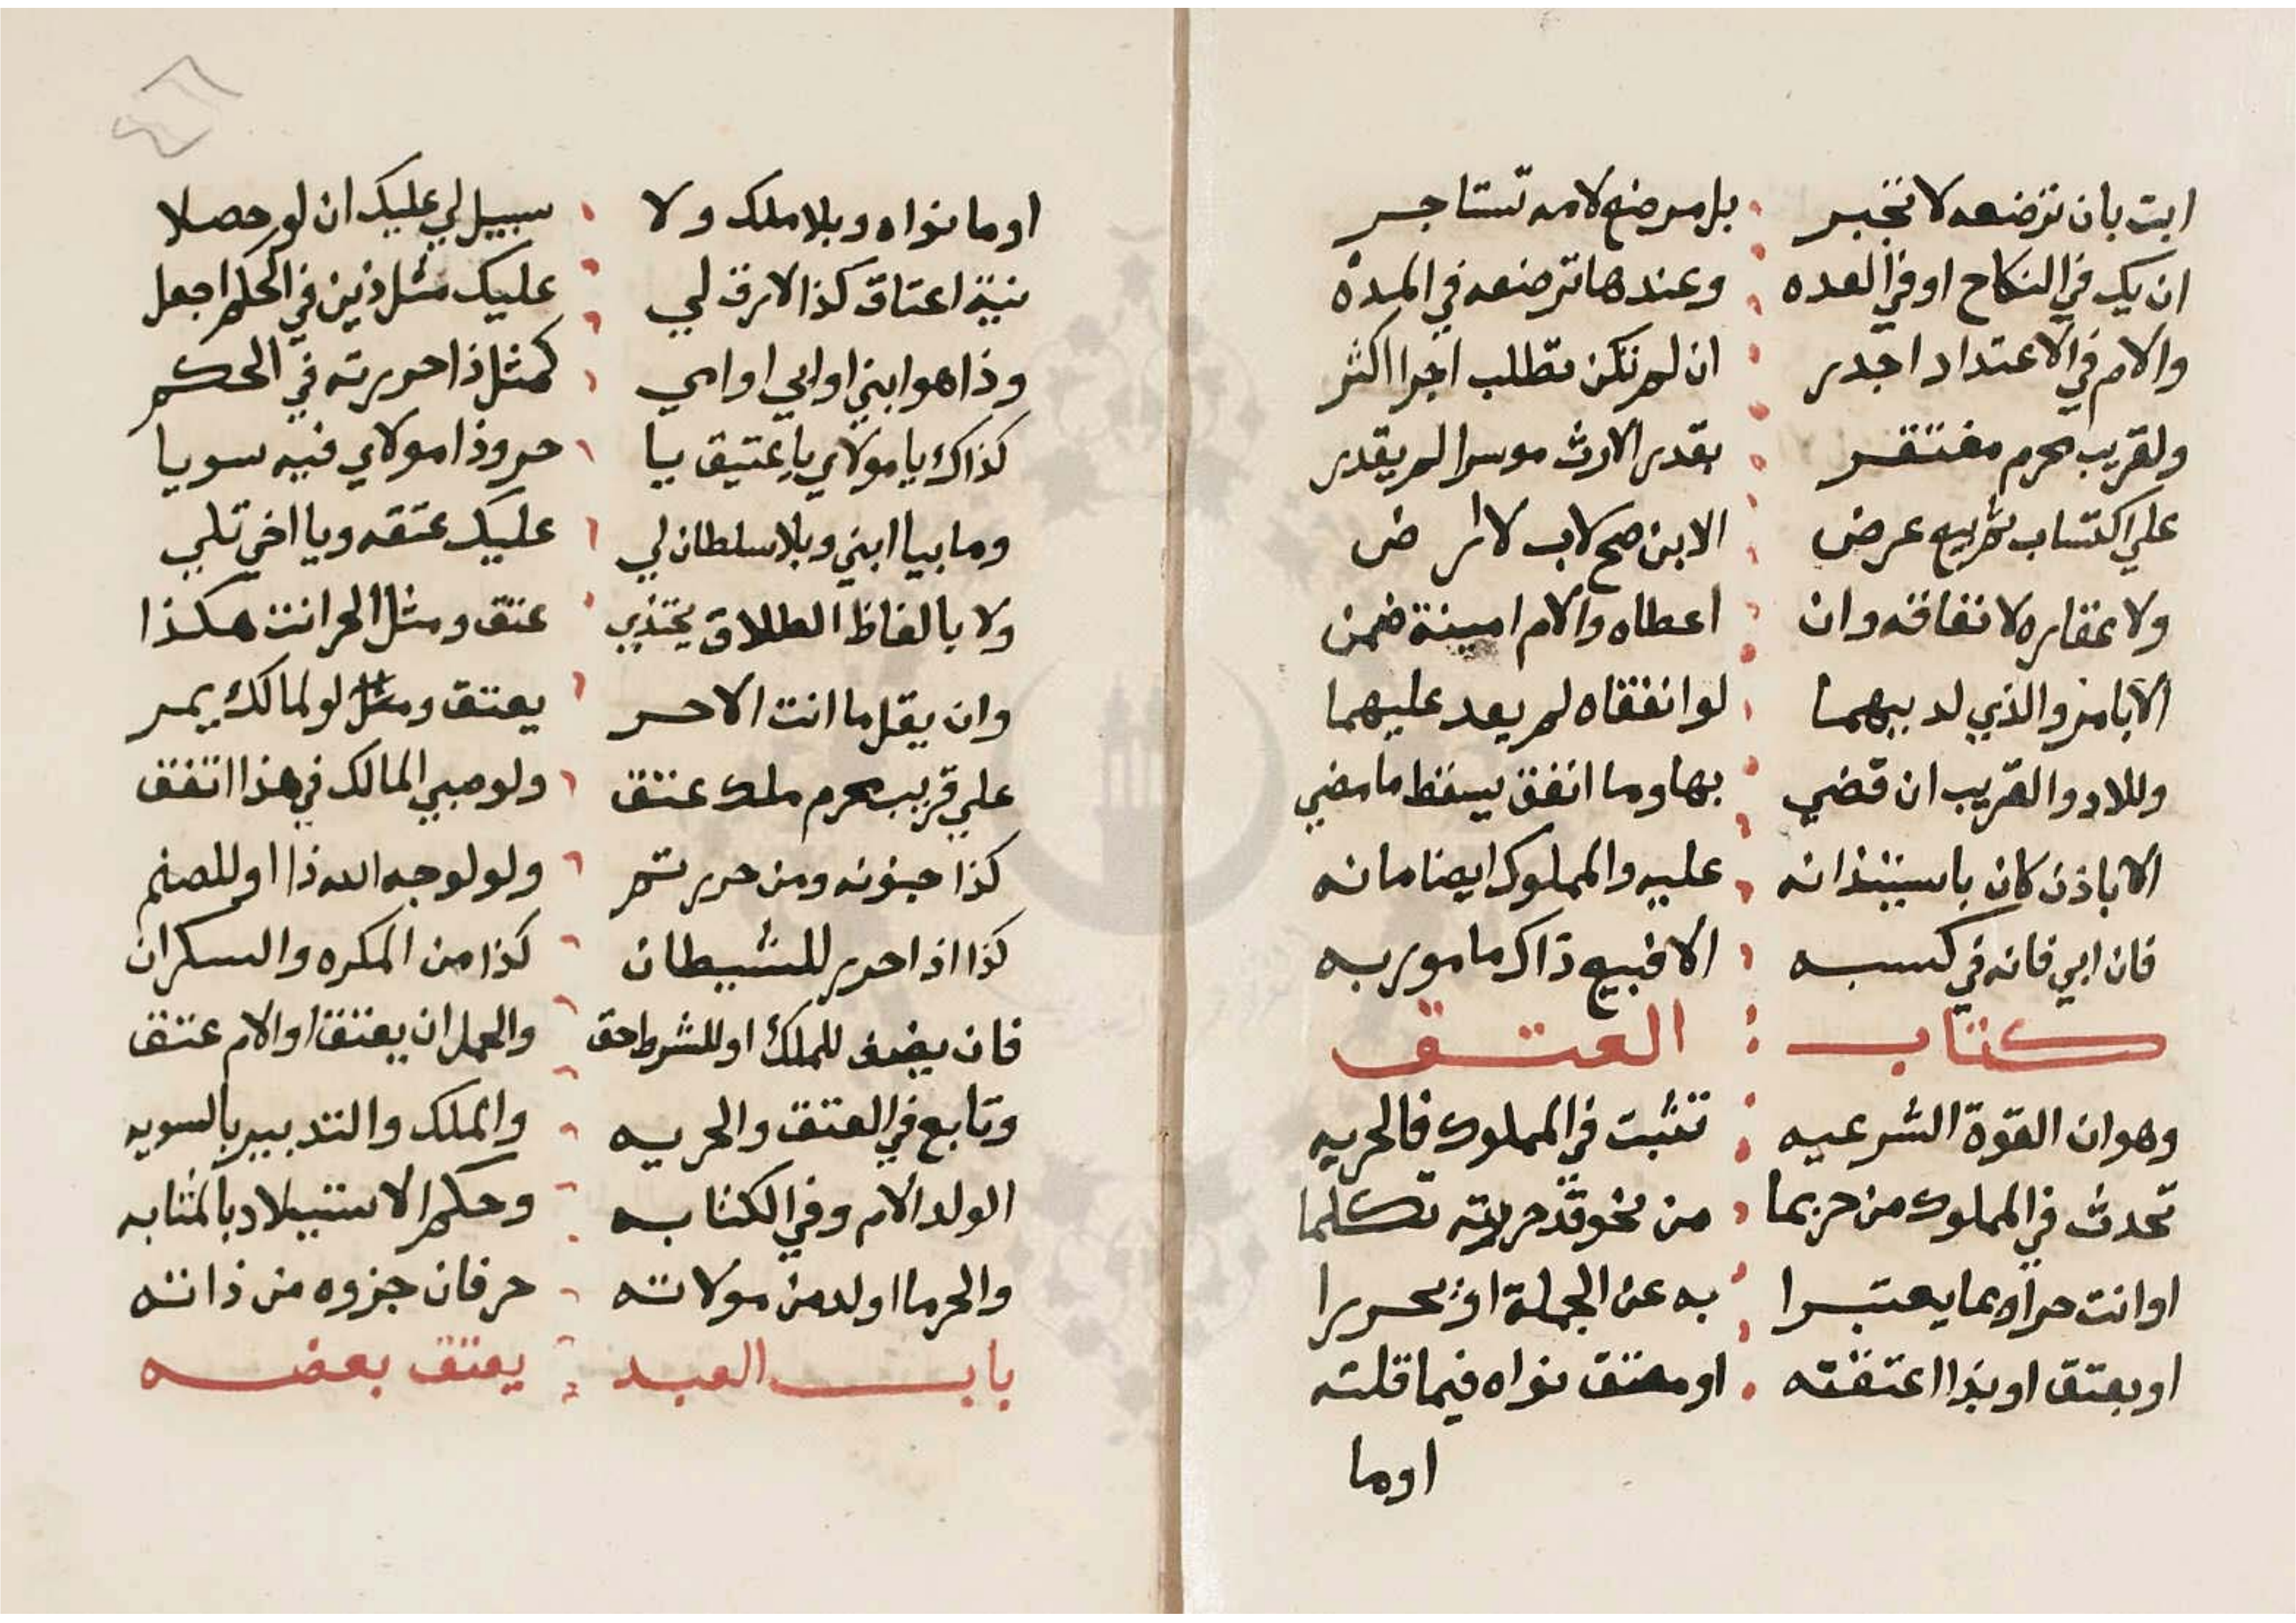 ابت بان ترضعه لا تجبر بل مرضع لامه تستاجر
ان يك في النكاح او في العده وعندها ترضعه في المدة
والام في الاعتداد اجدر ان لم تكن تطلب اجرا اكثر
ولقريب محرم مفتقر بقدر الارث موسرا لم يقدر
على اكتساب عرض الابن صح لاب لا ارض
ولا عقاره لانفاقه وان اعطاه والام امينة ضمن
الا بامر والذي لديهما لو انفقاه لم يعد عليهما
وللاد والقريب ان قضي بها وما انفق يسقط ما مضي
الا باذن كان باستيذانه عليه والمملوك ايضا مانه
فان ابي فانه في كسبه الا فبيع ذاك مامور به
كتاب العتق
وهو ان القوة الشرعيه تثبت في المملوك فالحريه
تحدث في المملوك من حر بما من نحو قد حررته تكلما
او انت حر او بما يعتبرا به عن الجملة اذ يحررا
او بعتق او بذا اعتقته او معتق نواه فيما قلته
اوما
اوما نواه وبلا ملك ولا سبيل لي عليك ان لو حصلا
بنية اعتاق كذا لا رق لي عليك مثل ذين في الحكم اجعل
وذا هو ابني او ابي او امي كمثل ذا حررته في الحكم
كذاك يا مولاي يا عتيق يا حر وذا مولاي فيه سويا
وما بيا ابني وبلا سلطان لي عليك عتقه ويا اخي تلي
ولا بالفاظ الطلاق يحتذي عتق ومثل الحر انت هكذا
وان يقل ما انت الا حر يعتق ومثل لو لمالك يمر
على قريب محرم ملك عتق ولو صبي المالك في هذا اتفق
كذا جنونه ومن حرر تم ولو لوجه الله ذا او للصنم
كذا اذا حرر للشيطان كذا من المكره والسكران
فان يضف للملك او للشرط حق والحمل ان يعتق او الام عتق
وتابع في العتق والحريه والملك والتدبير بالسويه
الولد الام وفي الكتابه وحكم الاستيلاد بالمثابه
والحر ما اولد من مولاته حر فان جزوه من ذاته
باب العبد يعتق بعضه